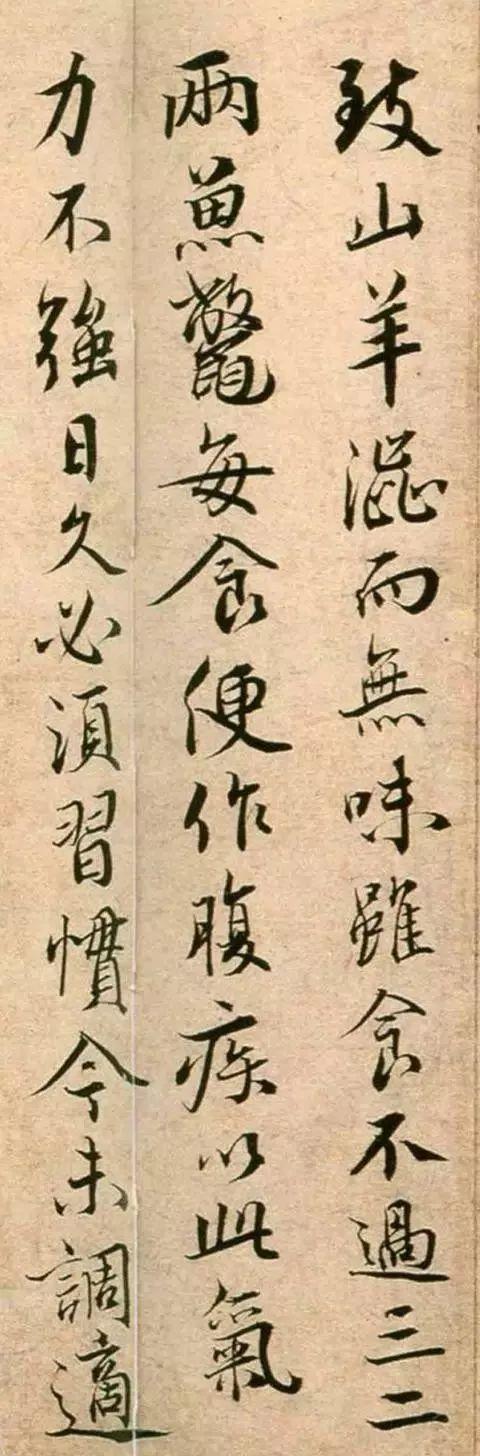 致山羊澁而無味雖食不過三二
兩魚鼈每食便作腹疾以此氣
力不強日久必須習慣今未調適